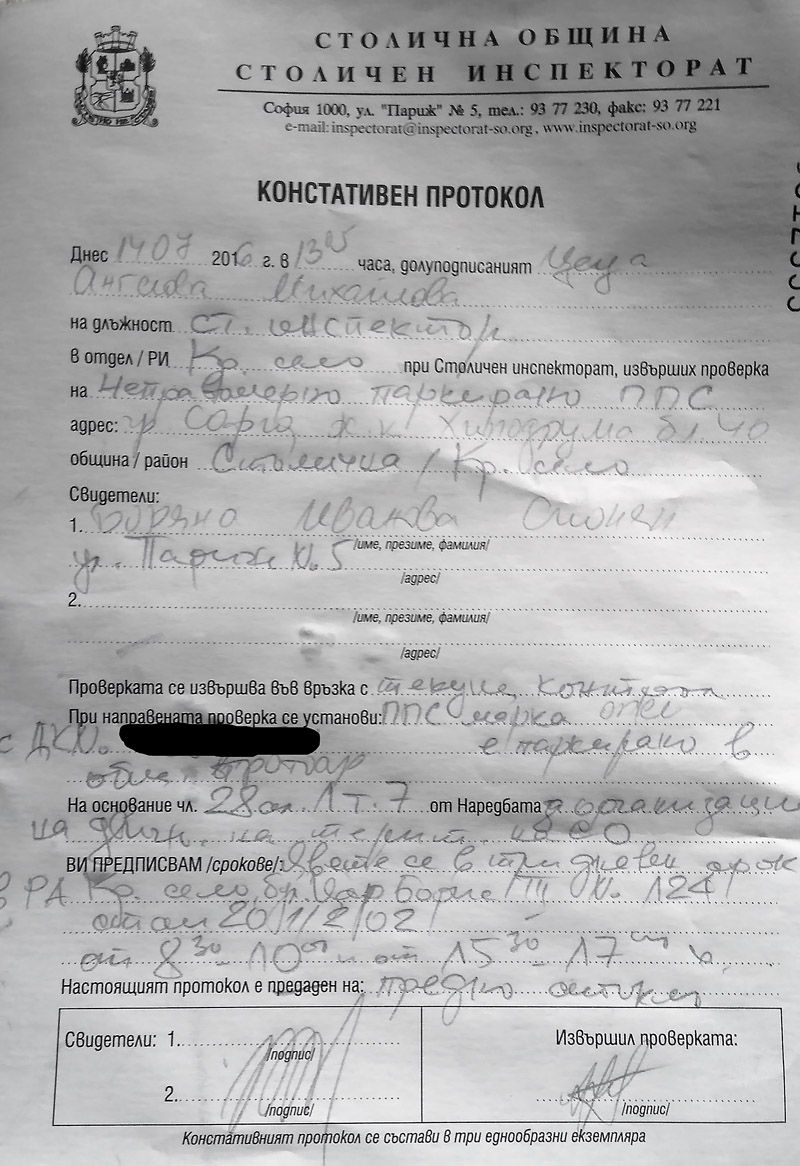 СТОЛИЧНА ОБЩИНА
СТОЛИЧЕН ИНСПЕКТОРАТ
София 1000, ул. "Париж" № 5, тел.: 93 77 230, факс: 93 77 221
e-mail: inspectorat@inspectorat-so.org, www.inspectorat-so.org
КОНСТАТИВЕН ПРОТОКОЛ
Днес 14 07 2016 г. в 13 часа, долуподписаният
Михайлова
на длъжност ст. инспектор
в отдел / РИ Кр. село при Столичен инспекторат, извърших проверка
на Неправомерно паркирано ППС
адрес: ж.к. Хиподрума бл. 40
община / район Столична / Кр. село
Свидетели:
1. Иванова
/име, презиме, фамилия/
ул. Париж № 5
/адрес/
2.
/име, презиме, фамилия/
/адрес/
Проверката се извършва във връзка с
При направената проверка се установи: ППС марка опел
с ДК№. е паркирано в
На основание чл. 28 ал. 1 т. 7 от Наредбата
на на терит. на СО
ВИ ПРЕДПИСВАМ /срокове/: Явете се в три дневен срок
в РА Кр. село, бул. Цар Борис III № 124
20/1/2/02
от 8 30 - 10 00 и от 15 30 - 17 00 ч.
Настоящият протокол е предаден на:
Свидетели: 1.
/подпис/
2.
/подпис/
Извършил проверката:
/подпис/
Констативният протокол се състави в три еднообразни екземпляра